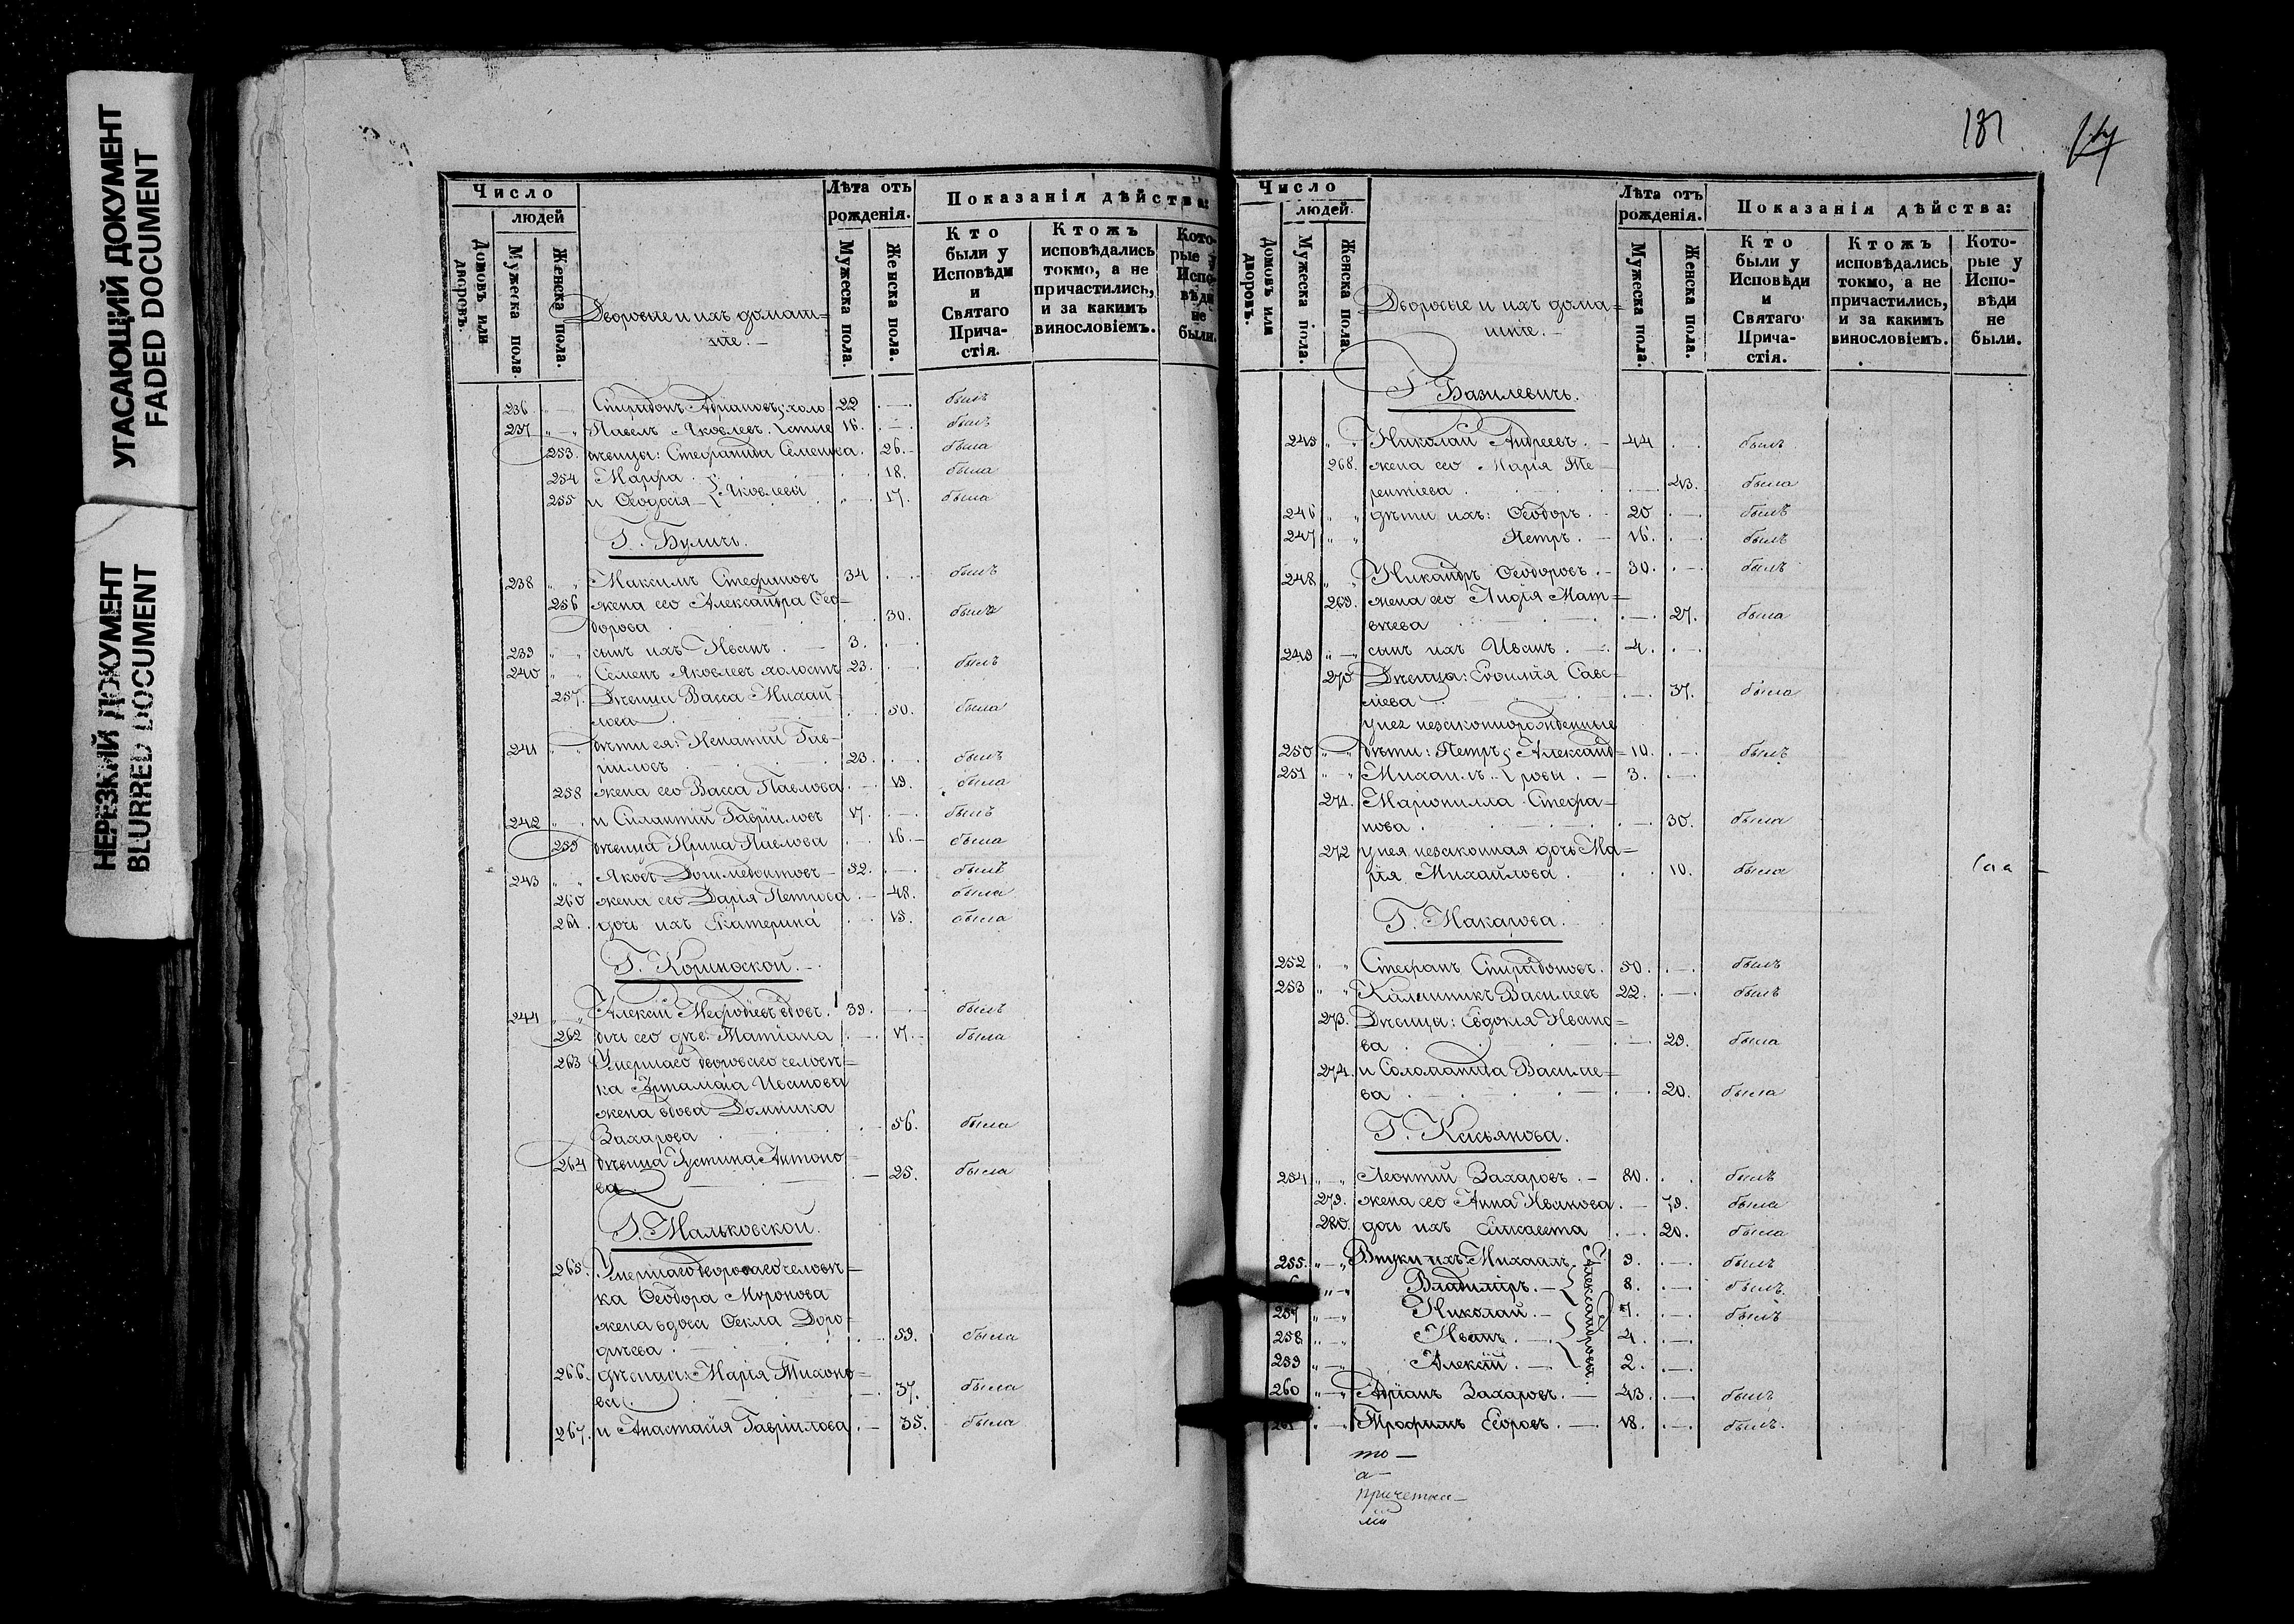 УГАСАЮЩИЙ ДОКУМЕНТ
FADED DOCUMENT
НЕРЕЗКИЙ ДОКУМЕНТ
BLURRED DOCUMENT
Число
людей
Домовъ или дворовъ.
Мужеска пола.
Женска пола.
Дворовые и ихъ домаш=
нiе. —
Лѣта отъ рожденiя.
Мужеска пола
Женска пола.
Показанiя дѣйства:
Кто были у Исповѣди и Святаго Прича-стiя.
Ктожъ исповѣдались токмо, а не причастились, и за какимъ винословiемъ.
Кото-рые у Испо-вѣди не были.
236 Спиридонъ Адрiановъ холо 22 былъ
237 Павелъ Яковлевъ стые 16. былъ
253. дѣвицы: Стефанида Семенова. 26. была
254 Марфа 18. была
255 и Ѳеодосiя Яковлевы 17. была
Г. Буличь.
238 Максимъ Стефановъ 34 былъ
256 жена его Александра Ѳео=
дорова 30. была
239 сынъ ихъ Иванъ 3.
240 Семенъ Яковлевъ холостъ 23. былъ
257. Дѣвица Васса Михай=
лова 50. была
241 дѣти ея: Игнатiй Гав=
рiиловъ 23. былъ
258 жена его Васса Павлова 19. была
242 и Силантiй Гаврiиловъ 17. былъ
259 дѣвица Ирина Павлова 16. была
243 Яковъ Долимедонтовъ 52. былъ
260 жена его Дарiя Петрова 48. была
261. дочь ихъ Екатерина 15. была
Г. Коринской.
244 Алексiй Меѳодiевъ вдовъ. 39. былъ
262 дочь его дѣв. Татiана 17. была
263 Умершаго двороваго человѣ=
ка Артамона Иванова
жена вдова Домника
Захарова 56. была
264 дѣвица Устина Антоно=
ва 25. была
Г. Мальковской.
265. Умершаго двороваго человѣ=
ка Ѳеодора Миронова
жена вдова Ѳекла Доро=
фѣева 59. была
266. дѣвица: Марiя Тихоно=
ва 37. была
267. и Анастасiя Гаврiилова 35. была
181
Число
людей.
Домовъ или дворовъ.
Мужеска пола.
Женска пола.
Дворовые и ихъ дома=
шнiе. —
Лѣта отъ рожденiя.
Мужеска пола.
Женска пола.
Показанiя дѣйства:
Кто были у Исповѣди и Святаго Прича-стiя.
Ктожъ исповѣдались токмо, а не причастились, и за какимъ винословiемъ.
Кото-рые у Испо-вѣди не были.
Г. Базилевичь.
245 Николай Андреевъ. 44 былъ
268. жена его Марiя Те=
рентiева 43. была
246 дѣти ихъ: Ѳеодоръ. 20 былъ
247 Петръ. 16. былъ
248 Никандръ Ѳеодоровъ. 30. былъ
269. жена его Лидiя Мат=
вѣева 27. была
249 сынъ ихъ Иванъ. 4.
270 Дѣвица: Евѳимiя Саве=
лiева 37. была
у нея незаконнорожденные
250 дѣти: Петръ Александ= 10. былъ
251 Михаилъ ровы. 3.
271. Марiонилла Стефа=
нова 30. была
272 у нея незаконная дочь Ма=
рiя Михайлова. 10. была
Г. Макарова.
252 Стефанъ Спиридоновъ. 50. былъ
253 Калинникъ Васильевъ 22. былъ
273. Дѣвица: Евдокiя Ивано=
ва 29. была
274. и Соломанида Василье=
ва 20. была
Г. Касьянова.
254 Леонтiй Захаровъ. 80. былъ
279. жена его Анна Иванова. 79. была
280. дочь ихъ Елисавета 20. была
255. Внуки ихъ: Михаилъ. 9. былъ
Владимiръ. 8. былъ.
257 Николай. 7. былъ
258 Иванъ. 4.
259 Алексiй. 2.
Александровы.
260 Адрiанъ Захаровъ. 43. былъ
261 Трофимъ Егоровъ. 18. былъ.
то —
а —
причетни—